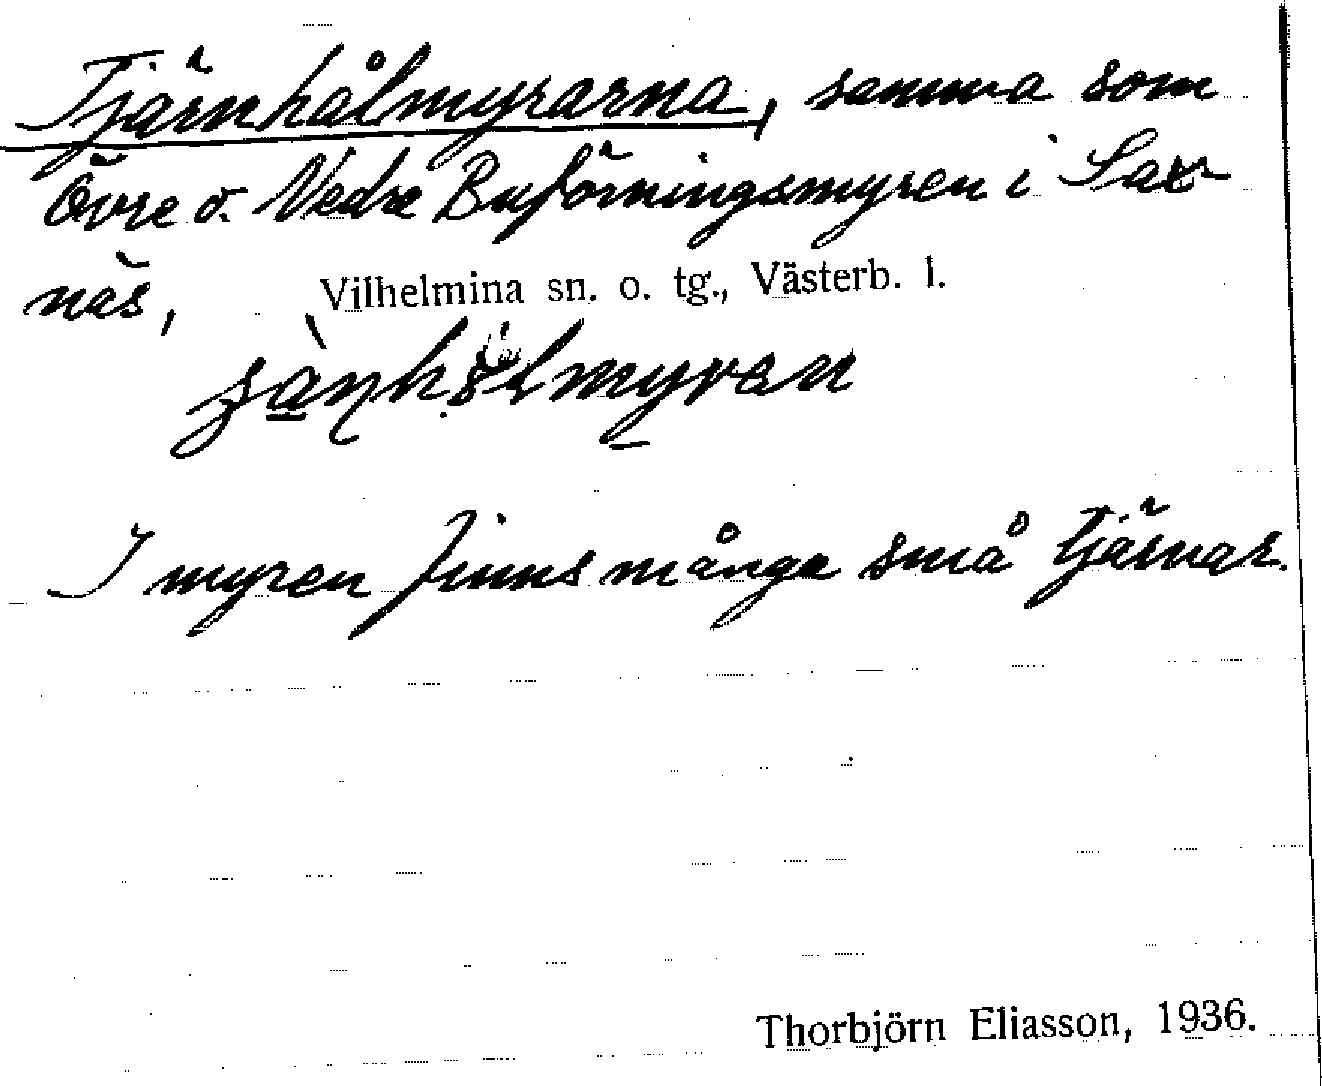 Tjärnhålmyrarna, samma som
Övre o. Nedre Buförningsmyren i Sax-
näs,
Vilhelmina sn. o. tg., Västerb. l.
I myren finns många små tjärnar.
Thorbjörn Eliasson, 1936.